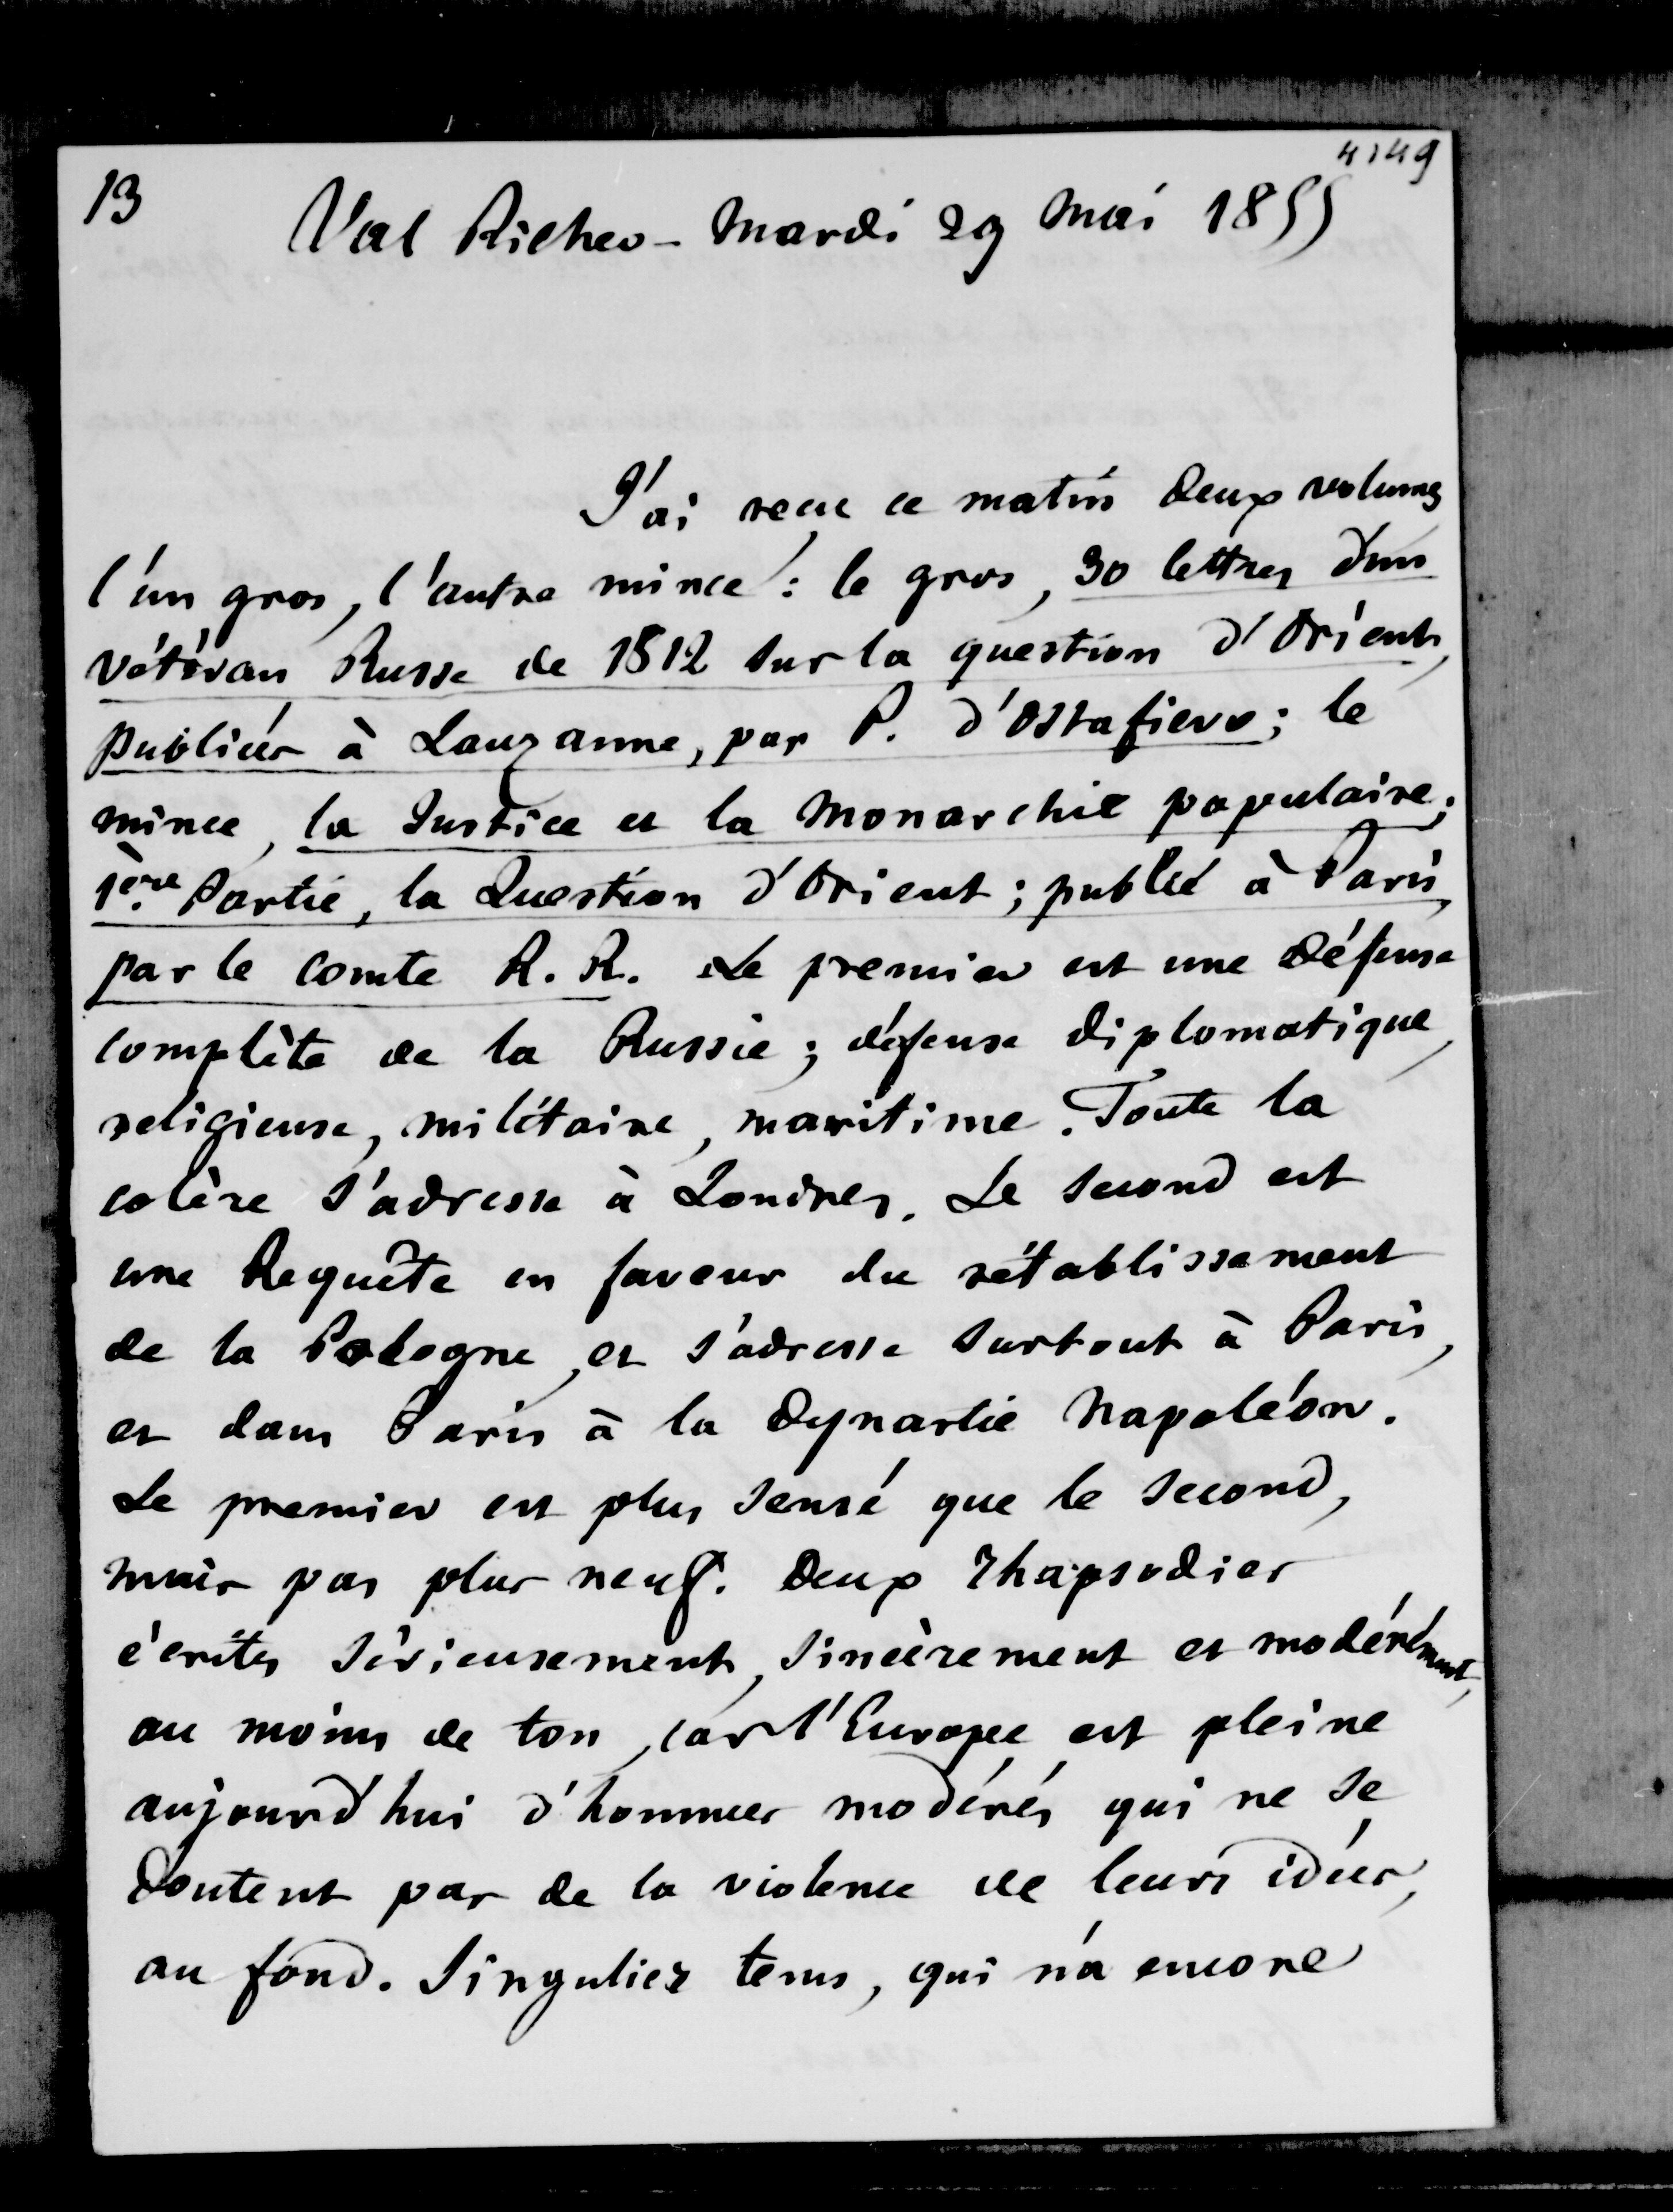 4149
13
Val Richer - Mardi 29 Mai 1855
J'ai reçu ce matin deux volumes
l'un gros, l'autre mince : le gros, 30 lettres d'un
vétéran Russe de 1812 sur la question d'Orient,
publiées à Lauzanne, par P. d'Ostafievo; le
mince, la Justice et la Monarchie populaire;
1ère Partie, la Question d'Orient ; publié à Paris,
par le comte R. R. Le premier est une défense
complète de la Russie ; défense diplomatique,
religieuse, militaire, maritime. Toute la
colère s'adresse à Londres. Le second est
une Requête en faveur du rétablissement
de la Pologne, et s'adresse surtout à Paris,
et dans Paris à la dynastie Napoléon.
Le premier est plus sensé que le second,
mais pas plus neuf. Deux rhapsodies
écrites sérieusement, sincèrement et modérément,
au moins de ton, car l'Europe est pleine
aujourd'hui d'hommes modérés qui ne se
doutent pas de la violence de leurs idées,
au fond. Singulier tems, qui n'a encore